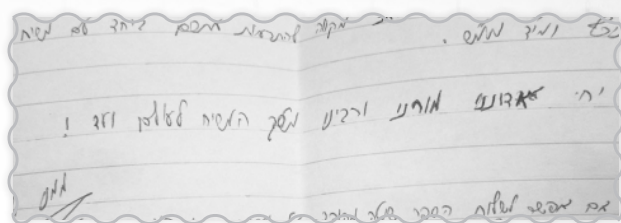 ומיד ממש . מקוה להתראות איתכם ביחד עם משיח
יחי אדוננו מורנו ורבינו מלך המשיח לעולם ועד !
גם אפשר לשלוח הספר